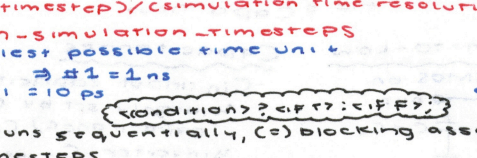 timestep)/(simulation time resoluti
n-simulation-timesteps
lest possible time unit
⇒ #1 = 1 ns
1 = 10 ps
<condition> ? <if T> : <if F>;
uns sequentially, (=) blocking ass
mesteps